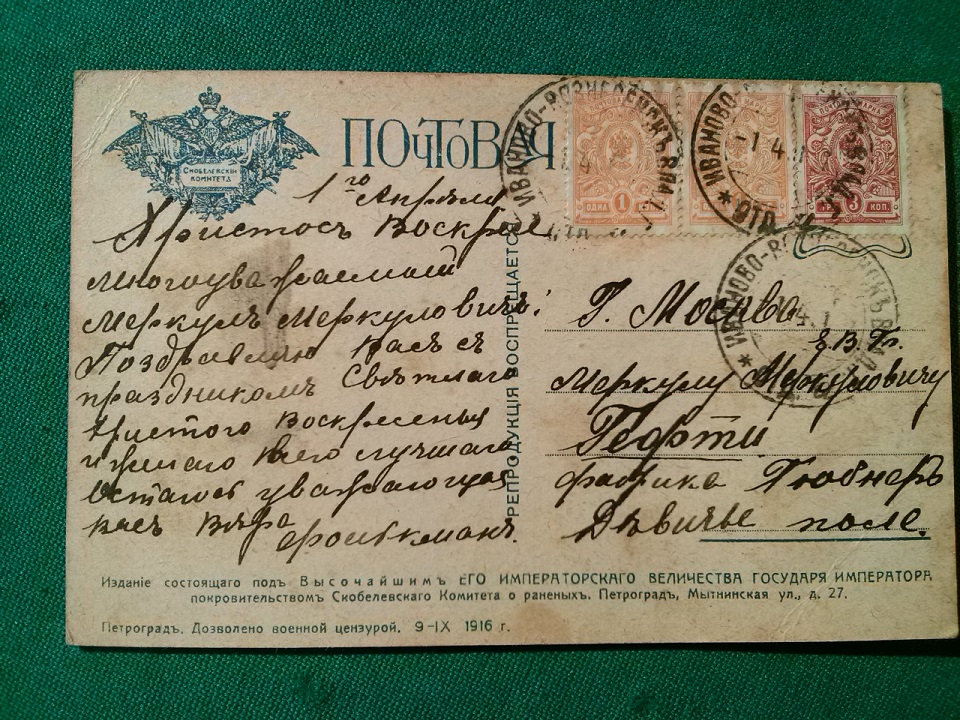 ПОЧТОВАЯ
СКОБЕЛЕВСКІЙ
КОМИТЕТЪ
1го Апрѣля
Христосъ Воскресе
многоуважаемый
Меркулъ Меркуловичъ!
Поздравляю Васъ съ
праздникомъ Свѣтлаго
Христого Воскресенья
и желаю всего лучшаго
Остаюсь уважающая
васъ Вѣра
Фольтманъ.
РЕПРОДУКЦІЯ ВОСПРЕЩАЕТСЯ
ИВАНОВО-ВОЗНЕСЕНСКЪ ВЛАД.
ОДНА 1
ИВАНОВО-
-1 4
ОТД.
3 КОП.
ИВАНОВО-
Г. Москва
Е. В. Г.
Меркулу Меркуловичу
Гефти
фабрика Гюбнеръ
Дѣвичье поле.
Изданіе состоящаго подъ Высочайшимъ ЕГО ИМПЕРАТОРСКАГО ВЕЛИЧЕСТВА ГОСУДАРЯ ИМПЕРАТОРА
покровительствомъ Скобелевскаго Комитета о раненыхъ. Петроградъ, Мытнинская ул., д. 27.
Петроградъ. Дозволено военной цензурой. 9-IX 1916 г.